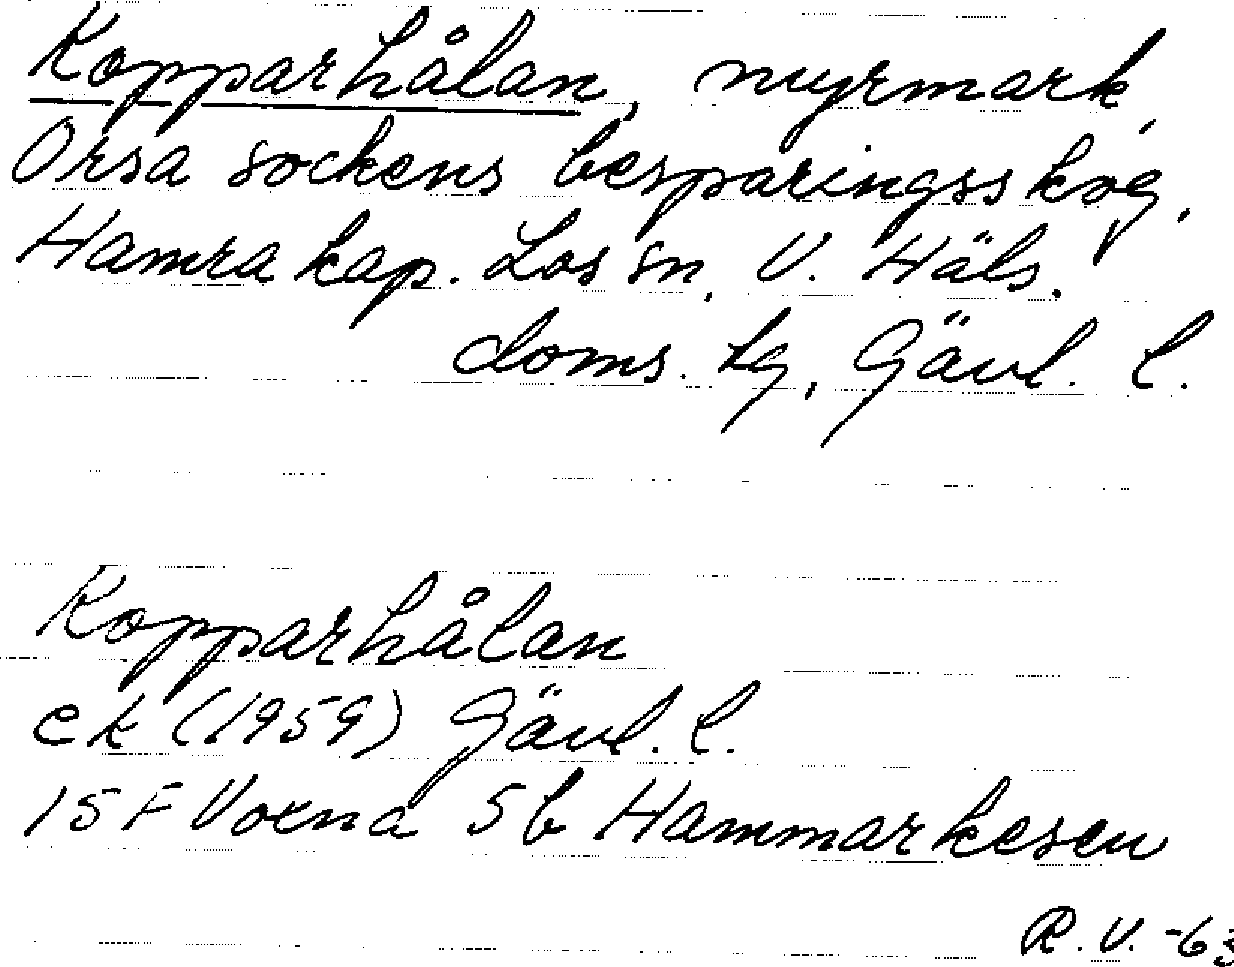 Kopparhålan, myrmark,
Orsa sockens besparingsskog,
Hamra kap. Los sn, V. Häls.
doms. lg, Gävl. l.
Kopparhålan
ek (1959) Gävl. l.
15 F Voxna 5b Hammarkesen
R. V. -63